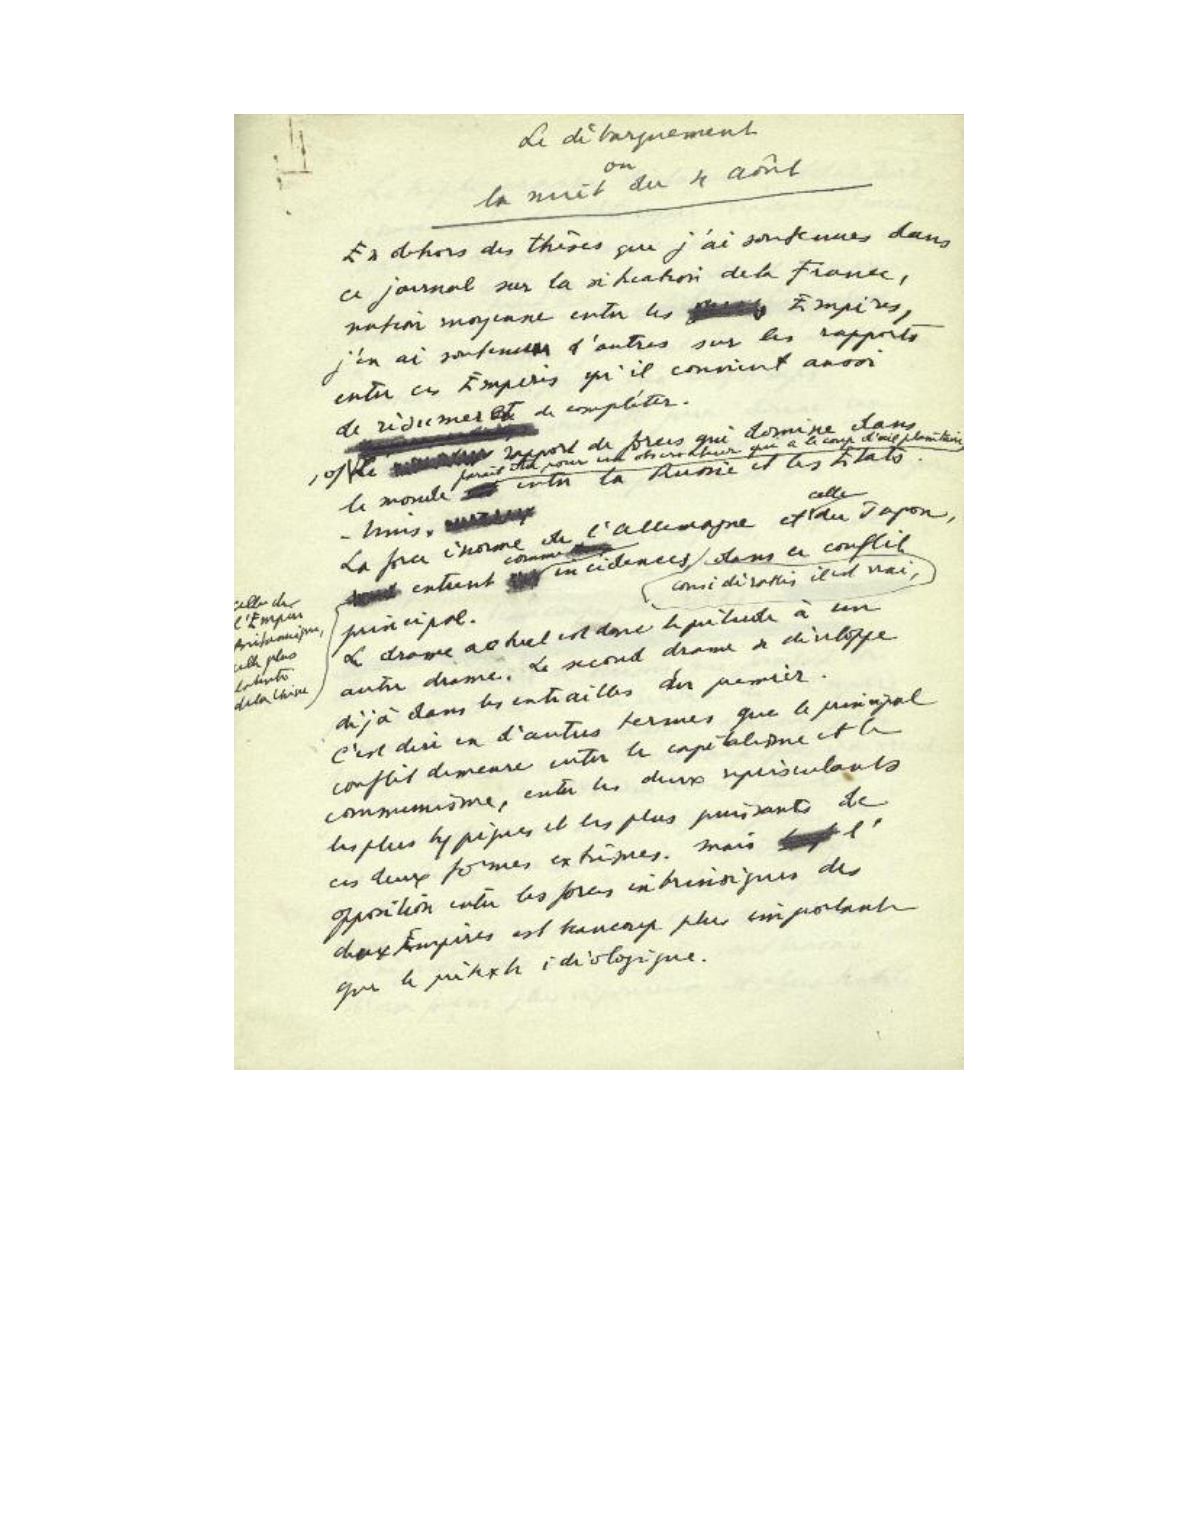 Le débarquement
ou
la nuit du 4 août
En dehors des thèses que j'ai soutenues dans
ce journal sur la situation de la France,
nation moyenne entre les Empires,
j'en ai soutenu d'autres sur les rapports
entre ces Empires qu'il convient aussi
de résumer et de compléter.
Le rapport de forces qui domine dans
paraît être pour un observateur qui a le coup d'œil planétaire
le monde entre la Russie et les États
-Unis.
celle
La force énorme de l'Allemagne et du Japon,
comme
entrent incidences, dans ce conflit
considérables il est vrai,
celle de
l'Empire
britannique,
celle plus
latente
de la Chine
principal.
Le drame actuel est donc le prélude à un
autre drame. Le second drame se développe
déjà dans les entrailles du premier.
C'est dire en d'autres termes que le principal
conflit demeure entre le capitalisme et le
communisme, entre les deux représentants
les plus typiques et les plus puissants de
ces deux formes extrêmes. Mais l'
opposition entre les forces intrinsèques des
deux Empires est beaucoup plus importante
que le prétexte idéologique.